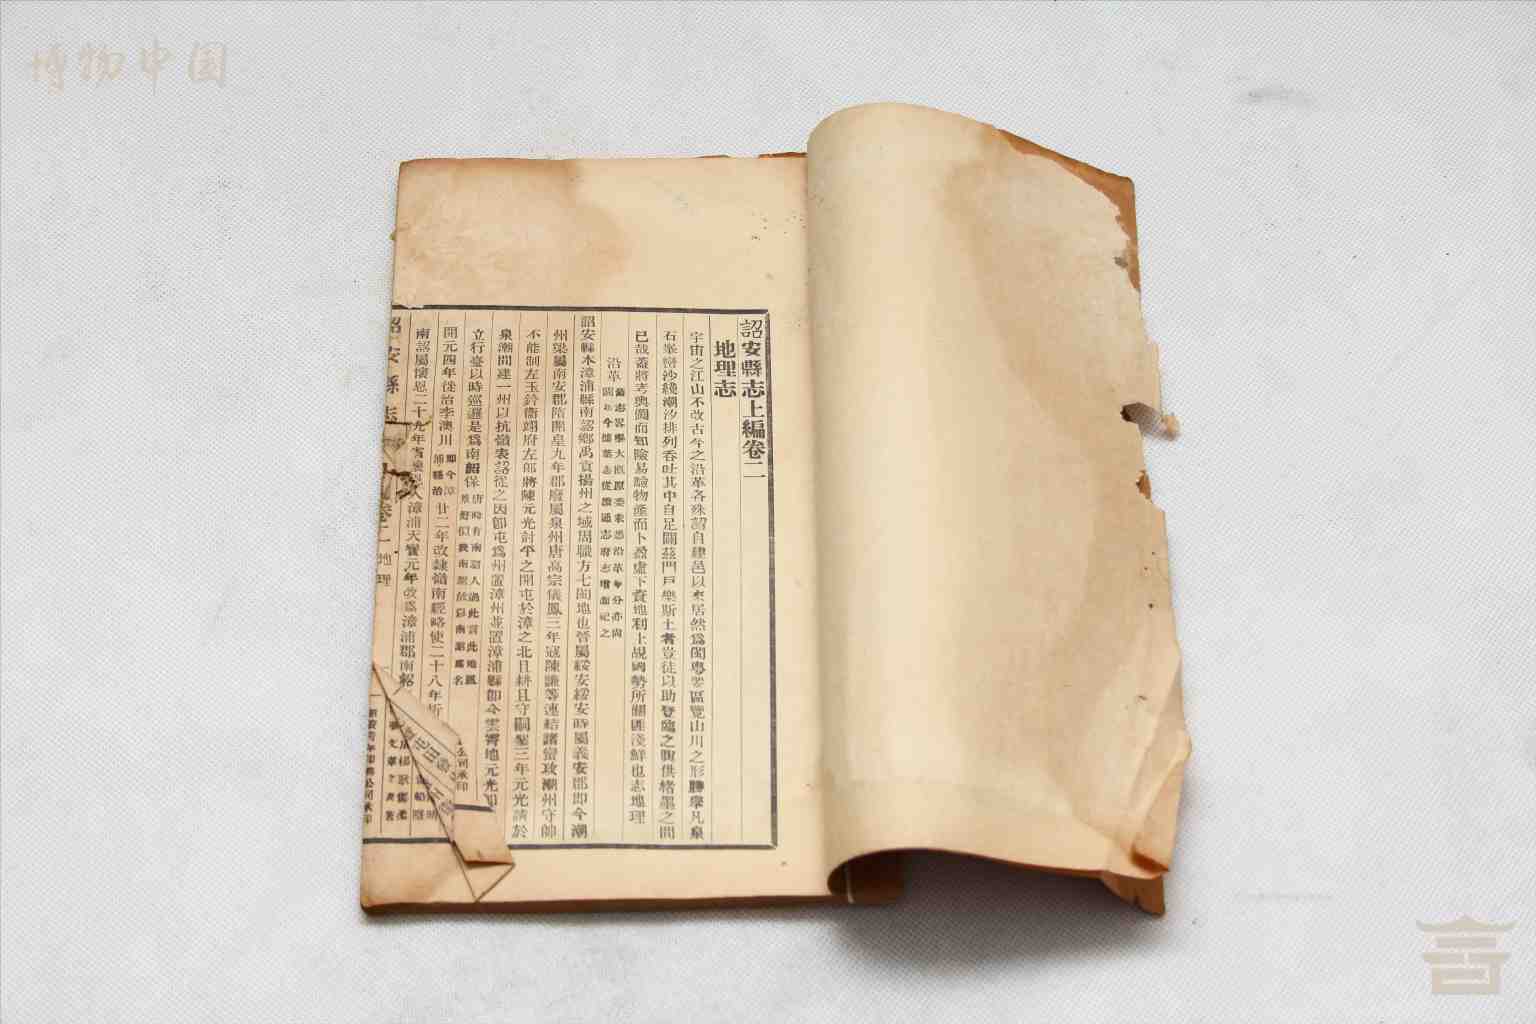 博物中国
詔安縣志上編卷二
地理志
宇宙之江山不改古今之沿革各殊詔自建邑以來居然爲閩粤要區覽山川之形勝摩凡泉
石峯巒沙綫潮汐排列吞吐其中自足關茲門戶樂斯土者豈徒以助登臨之興供緒墨之間
已哉蓋將考輿圖而知險易驗物產而卜盈虛下資地利上規國勢所關匪淺鮮也志地理
沿革
詔安縣本漳浦縣南詔鄉禹貢揚州之域周職方七閩地也晉屬綏安綏安時屬義安郡即今潮
州梁屬南安郡隋開皇九年郡廢屬泉州唐高宗儀鳳三年寇陳謙等連結諸蠻攻潮州守帥
不能制左玉鈐衞翊府左郎將陳元光討平之開屯於漳之北且耕且守嗣聖三年元光請於
泉潮間建一州以抗嶺表詔從之因即屯爲州置漳州並置漳浦縣即今雲霄地元光即
立行臺以時巡邏是爲南詔保
唐時有南詔人過此言此地風
景好似我南詔故以南詔爲名
開元四年徙治李澳川
即今漳
浦縣治
廿二年改隸嶺南經略使二十八年
南詔屬懷恩二十九年省
入漳浦天寶元年改爲漳浦郡南詔
詔安縣志
卷二
地理
公司承印